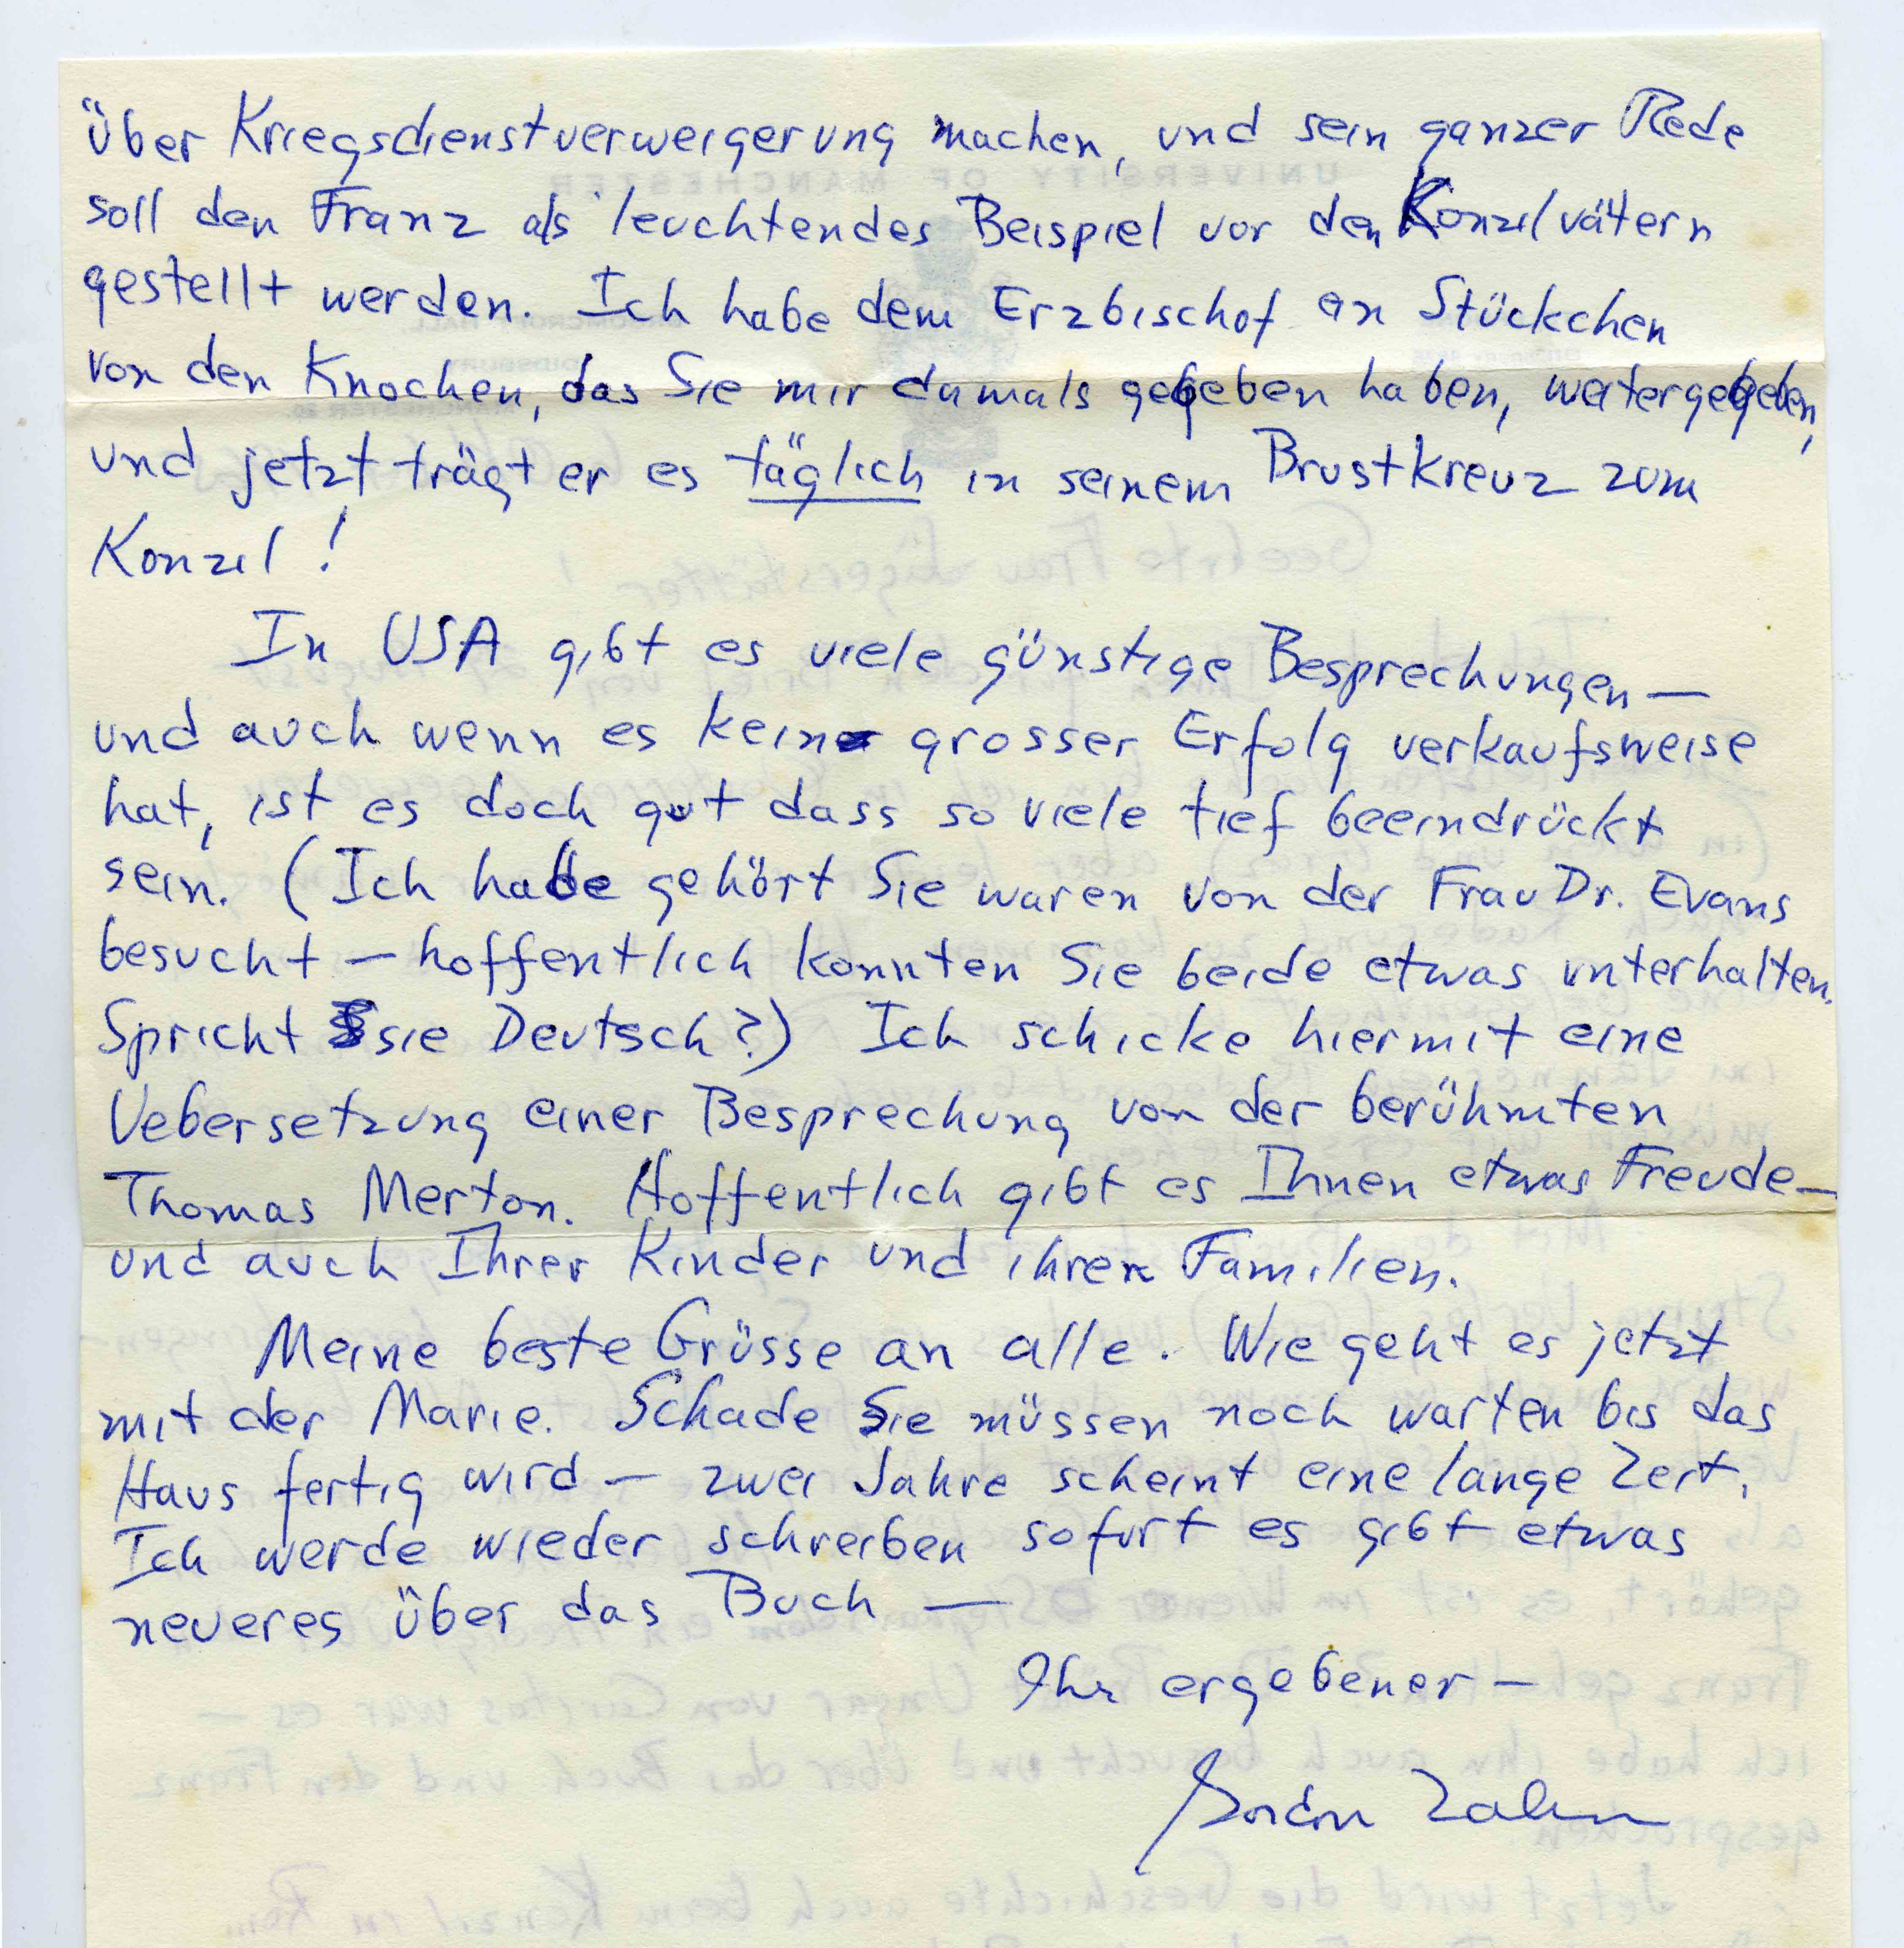 über Kriegsdienstverweigerung machen, und sein ganzer Rede
soll den Franz als leuchtendes Beispiel vor den Konzilvätern
gestellt werden. Ich habe dem Erzbischof ein Stückchen
von den Knochen, das Sie mir damals gegeben haben, weitergegeben,
und jetzt trägt er es täglich in seinem Brustkreuz zum
Konzil!
In USA gibt es viele günstige Besprechungen —
und auch wenn es kein grosser Erfolg verkaufsweise
hat, ist es doch gut dass so viele tief beeindrückt
sein. (Ich habe gehört Sie waren von der Frau Dr. Evans
besucht — hoffentlich konnten Sie beide etwas unterhalten.
Spricht sie Deutsch?) Ich schicke hiermit eine
Uebersetzung einer Besprechung von der berühmten
Thomas Merton. Hoffentlich gibt es Ihnen etwas Freude —
und auch Ihrer Kinder und ihren Familien.
Meine beste Grüsse an alle. Wie geht es jetzt
mit der Marie. Schade Sie müssen noch warten bis das
Haus fertig wird — zwei Jahre scheint eine lange Zeit.
Ich werde wieder schreiben sofort es gibt etwas
neueres über das Buch —
Ihr ergebener —
Gordon Zahn